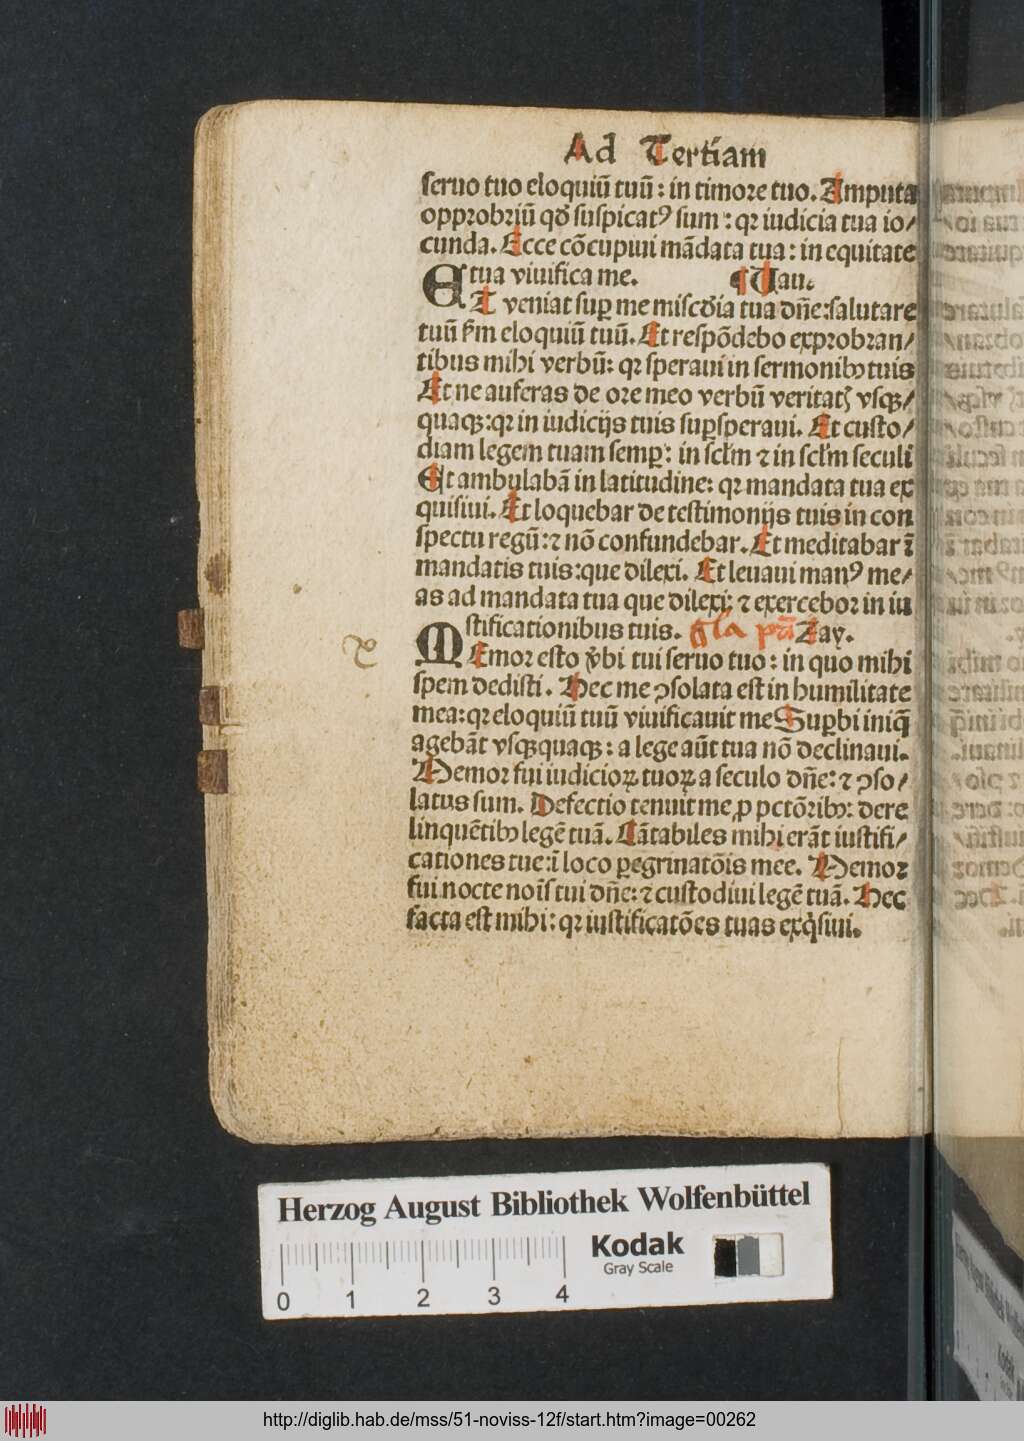 Ad Tertiam
seruo tuo eloquiū tuū: in timore tuo. Amputa
opprobriū qd̄ suspicatꝰ sum: qꝛ iudicia tua io/
cunda. Ecce cōcupiui mādata tua: in equitate
tua viuifica me. ¶ Uau.
ET veniat sup̱ me miscd̄ia tua dn̄e: salutare
tuū ẜm eloquiū tuū. Et respōdebo exprobran/
tibus mihi verbū: qꝛ speraui in sermonibꝫ tuis
Et ne auferas de ore meo verbū veritatꝭ vsqꝫ/
quaqꝫ: qꝛ in iudicijs tuis sup̱speraui. Et custo/
diam legem tuam semp̱: in scl̄m ⁊ in scl̄m seculi
Et ambulabā in latitudine: qꝛ mandata tua ex
quisiui. Et loquebar de testimonijs tuis in con
spectu regū: ⁊ nō confundebar. Et meditabar ī
mandatis tuis: que dilexi. Et leuaui manꝰ me/
as ad mandata tua que dilexi: ⁊ exercebor in iu
stificationibus tuis. gl̄a pr̄i Zay.
MEmor esto v̄bi tui seruo tuo: in quo mihi
spem dedisti. Hec me ꝯsolata est in humilitate
mea: qꝛ eloquiū tuū viuificauit me Suꝑbi iniq̄
agebāt vsqꝫquaqꝫ: a lege aūt tua nō declinaui.
Memor fui iudicioꝝ tuoꝝ a seculo dn̄e: ⁊ ꝯso/
latus sum. Defectio tenuit me, ꝓ pctōribꝫ: dere
linquētibꝫ legē tuā. Cātabiles mihi erāt iustifi/
cationes tue: ī loco ꝑegrinatōis mee. Memor
fui nocte noīs tui dn̄e: ⁊ custodiui legē tuā. Hec
facta est mihi: qꝛ iustificatōes tuas exq̇siui.
Herzog August Bibliothek Wolfenbüttel
Kodak
Gray Scale
0 1 2 3 4
http://diglib.hab.de/mss/51-noviss-12f/start.htm?image=00262